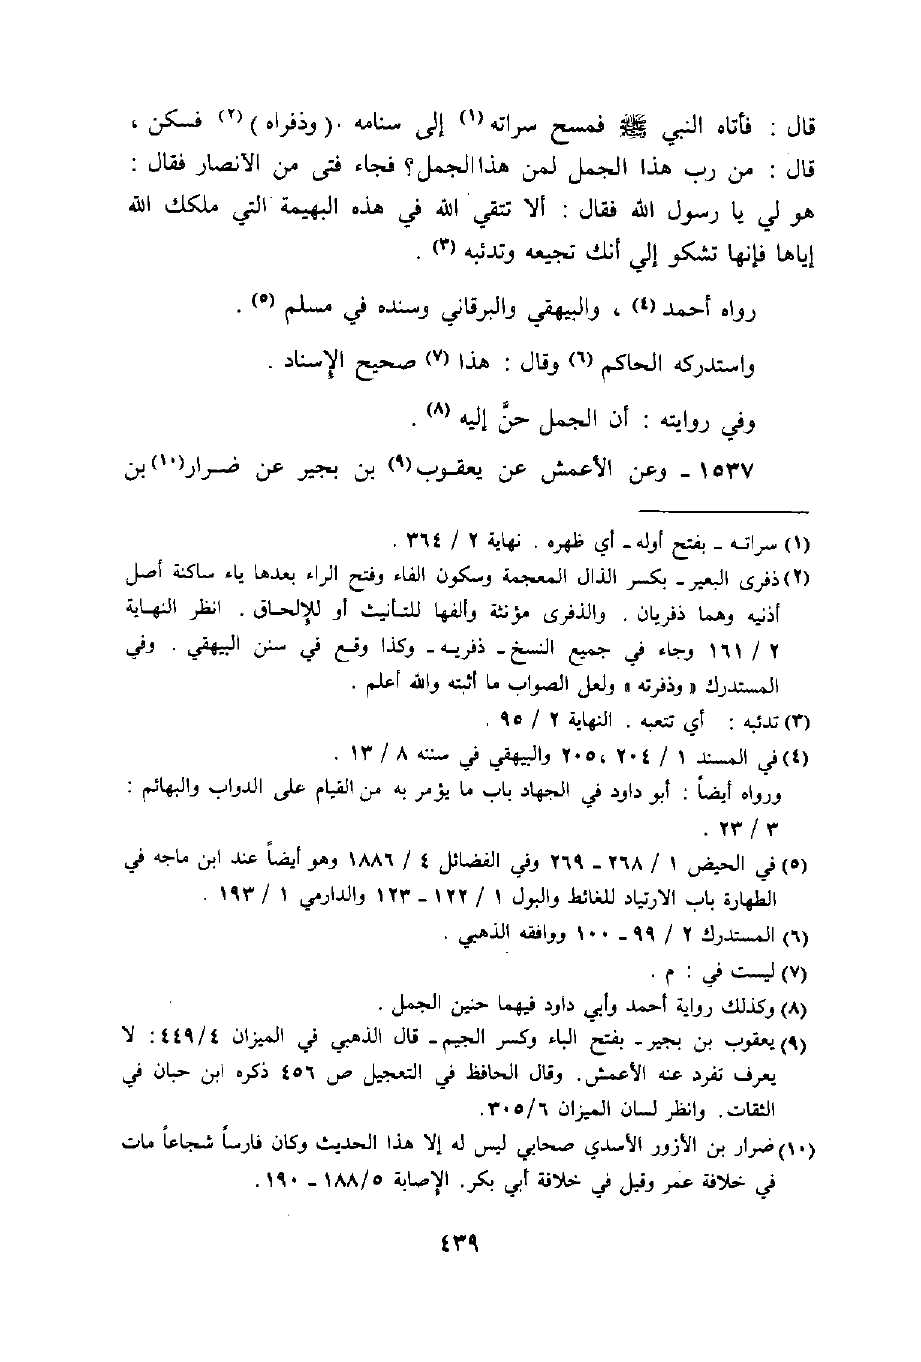 قال : فأتاه النبي ﷺ فمسح سراته (١) إلى سنامه . ( وذفراه ) (٢) فسكن ،
قال : من رب هذا الجمل لمن هذاالجمل؟ فجاء فتى من الأنصار فقال :
هو لي يا رسول الله فقال : ألا تتقي الله في هذه البهيمة التي ملكك الله
إياها فإنها تشكو إلي أنك تجيعه وتدئبه (٣) .
رواه أحمد (٤) ، والبيهقي والبرقاني وسنده في مسلم (٥) .
واستدركه الحاكم (٦) وقال : هذا (٧) صحيح الإسناد .
وفي روايته : أن الجمل حنَّ إليه (٨) .
١٥٣٧ - وعن الأعمش عن يعقوب(٩) بن بجير عن ضرار(١٠) بن
(١) سراته - بفتح أوله - أي ظهره . نهاية ٢ / ٣٦٤ .
(٢) ذفرى البعير - بكسر الذال المعجمة وسكون الفاء وفتح الراء بعدها ياء ساكنة أصل
أذنيه وهما ذفريان . والذفرى مؤنثة وألفها للتأنيث أو للإلحاق . انظر النهاية
٢ / ١٦١ وجاء في جميع النسخ - ذفريه - وكذا وقع في سنن البيهقي . وفي
المستدرك « وذفرته » ولعل الصواب ما أثبته والله أعلم .
(٣) تدئبه : أي تتعبه . النهاية ٢ / ٩٥ .
(٤) في المسند ١ / ٢٠٤ ، ٢٠٥ والبيهقي في سننه ٨ / ١٣ .
ورواه أيضاً : أبو داود في الجهاد باب ما يؤمر به من القيام على الدواب والبهائم :
٣ / ٢٣ .
(٥) في الحيض ١ / ٢٦٨ - ٢٦٩ وفي الفضائل ٤ / ١٨٨٦ وهو أيضاً عند ابن ماجه في
الطهارة باب الارتياد للغائط والبول ١ / ١٢٢ - ١٢٣ والدارمي ١ / ١٩٣ .
(٦) المستدرك ٢ / ٩٩ - ١٠٠ ووافقه الذهبي .
(٧) ليست في : م .
(٨) وكذلك رواية أحمد وأبي داود فيهما حنين الجمل .
(٩) يعقوب بن بجير - بفتح الباء وكسر الجيم - قال الذهبي في الميزان ٤٤٩/٤ : لا
يعرف تفرد عنه الأعمش. وقال الحافظ في التعجيل ص ٤٥٦ ذكره ابن حبان في
الثقات. وانظر لسان الميزان ٣٠٥/٦.
(١٠) ضرار بن الأزور الأسدي صحابي ليس له إلا هذا الحديث وكان فارساً شجاعاً مات
في خلافة عمر وقيل في خلافة أبي بكر. الإصابة ١٨٨/٥ - ١٩٠.
٤٣٩